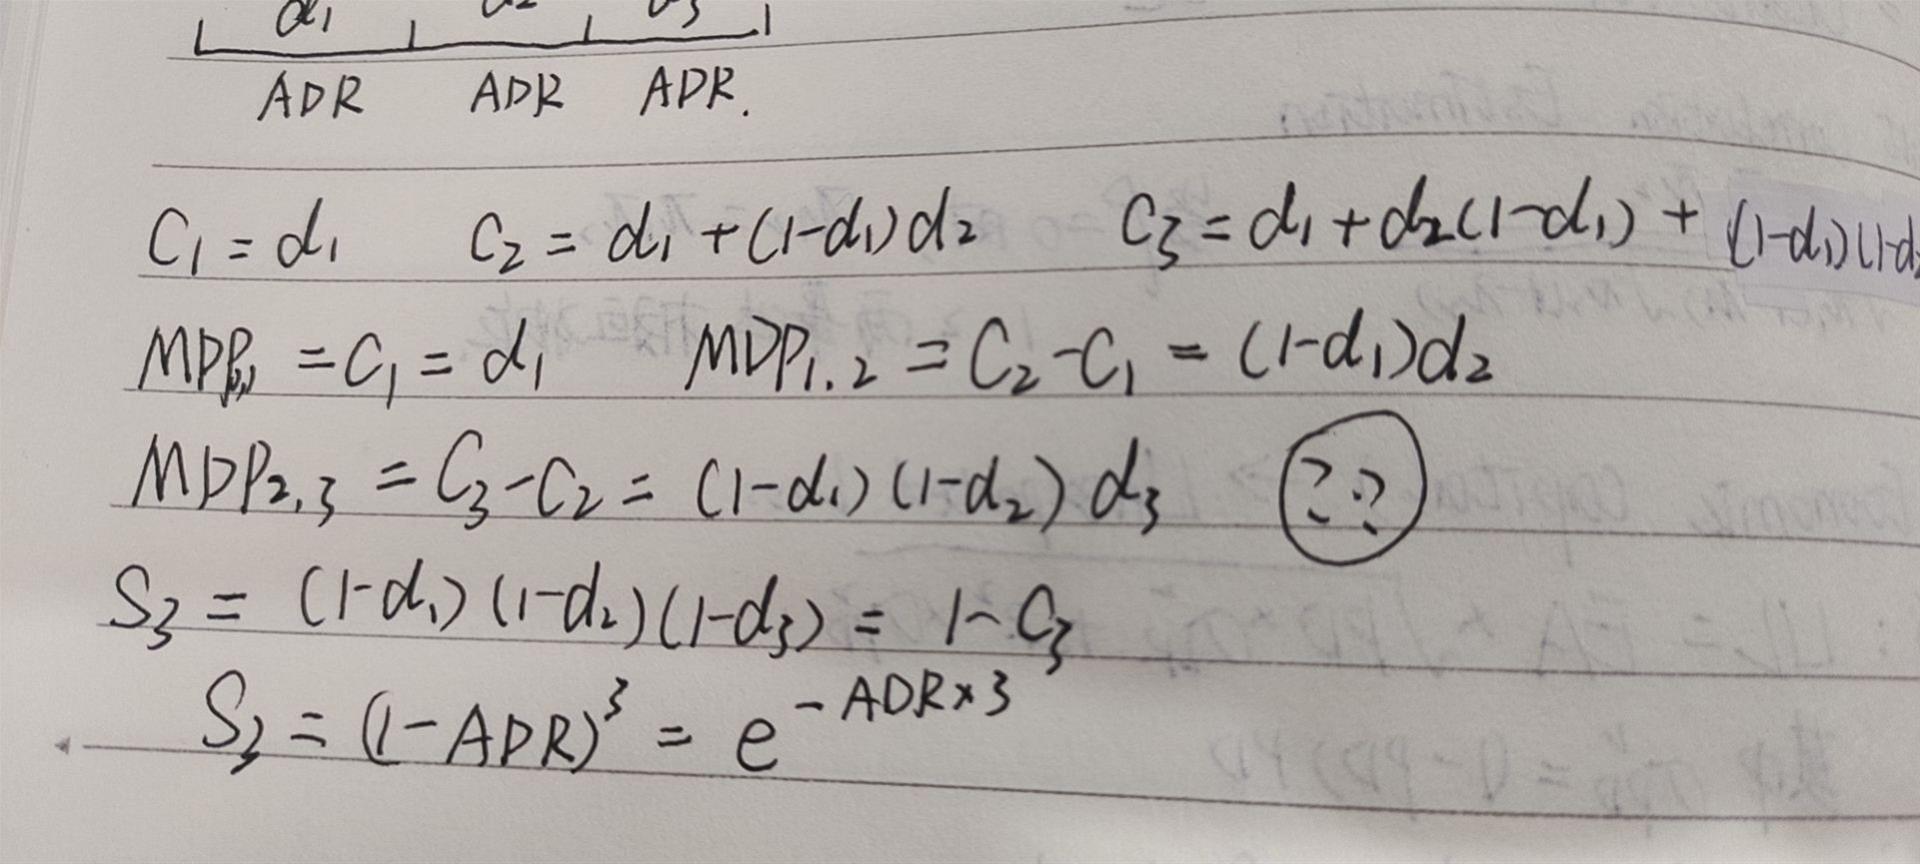 d1 d2 d3
ADR ADR ADR.
C₁ = d₁ C₂ = d₁ + (1-d₁)d₂ C₃ = d₁ + d₂(1-d₁) + (1-d₁)(1-d₂
MDP₀,₁ = C₁ = d₁ MDP₁.₂ = C₂ - C₁ = (1-d₁)d₂
MDP₂,₃ = C₃ - C₂ = (1-d₁)(1-d₂)d₃ ??
S₃ = (1-d₁)(1-d₂)(1-d₃) = 1 - C₃
S₃ = (1-ADR)³ = e^{-ADR×3}